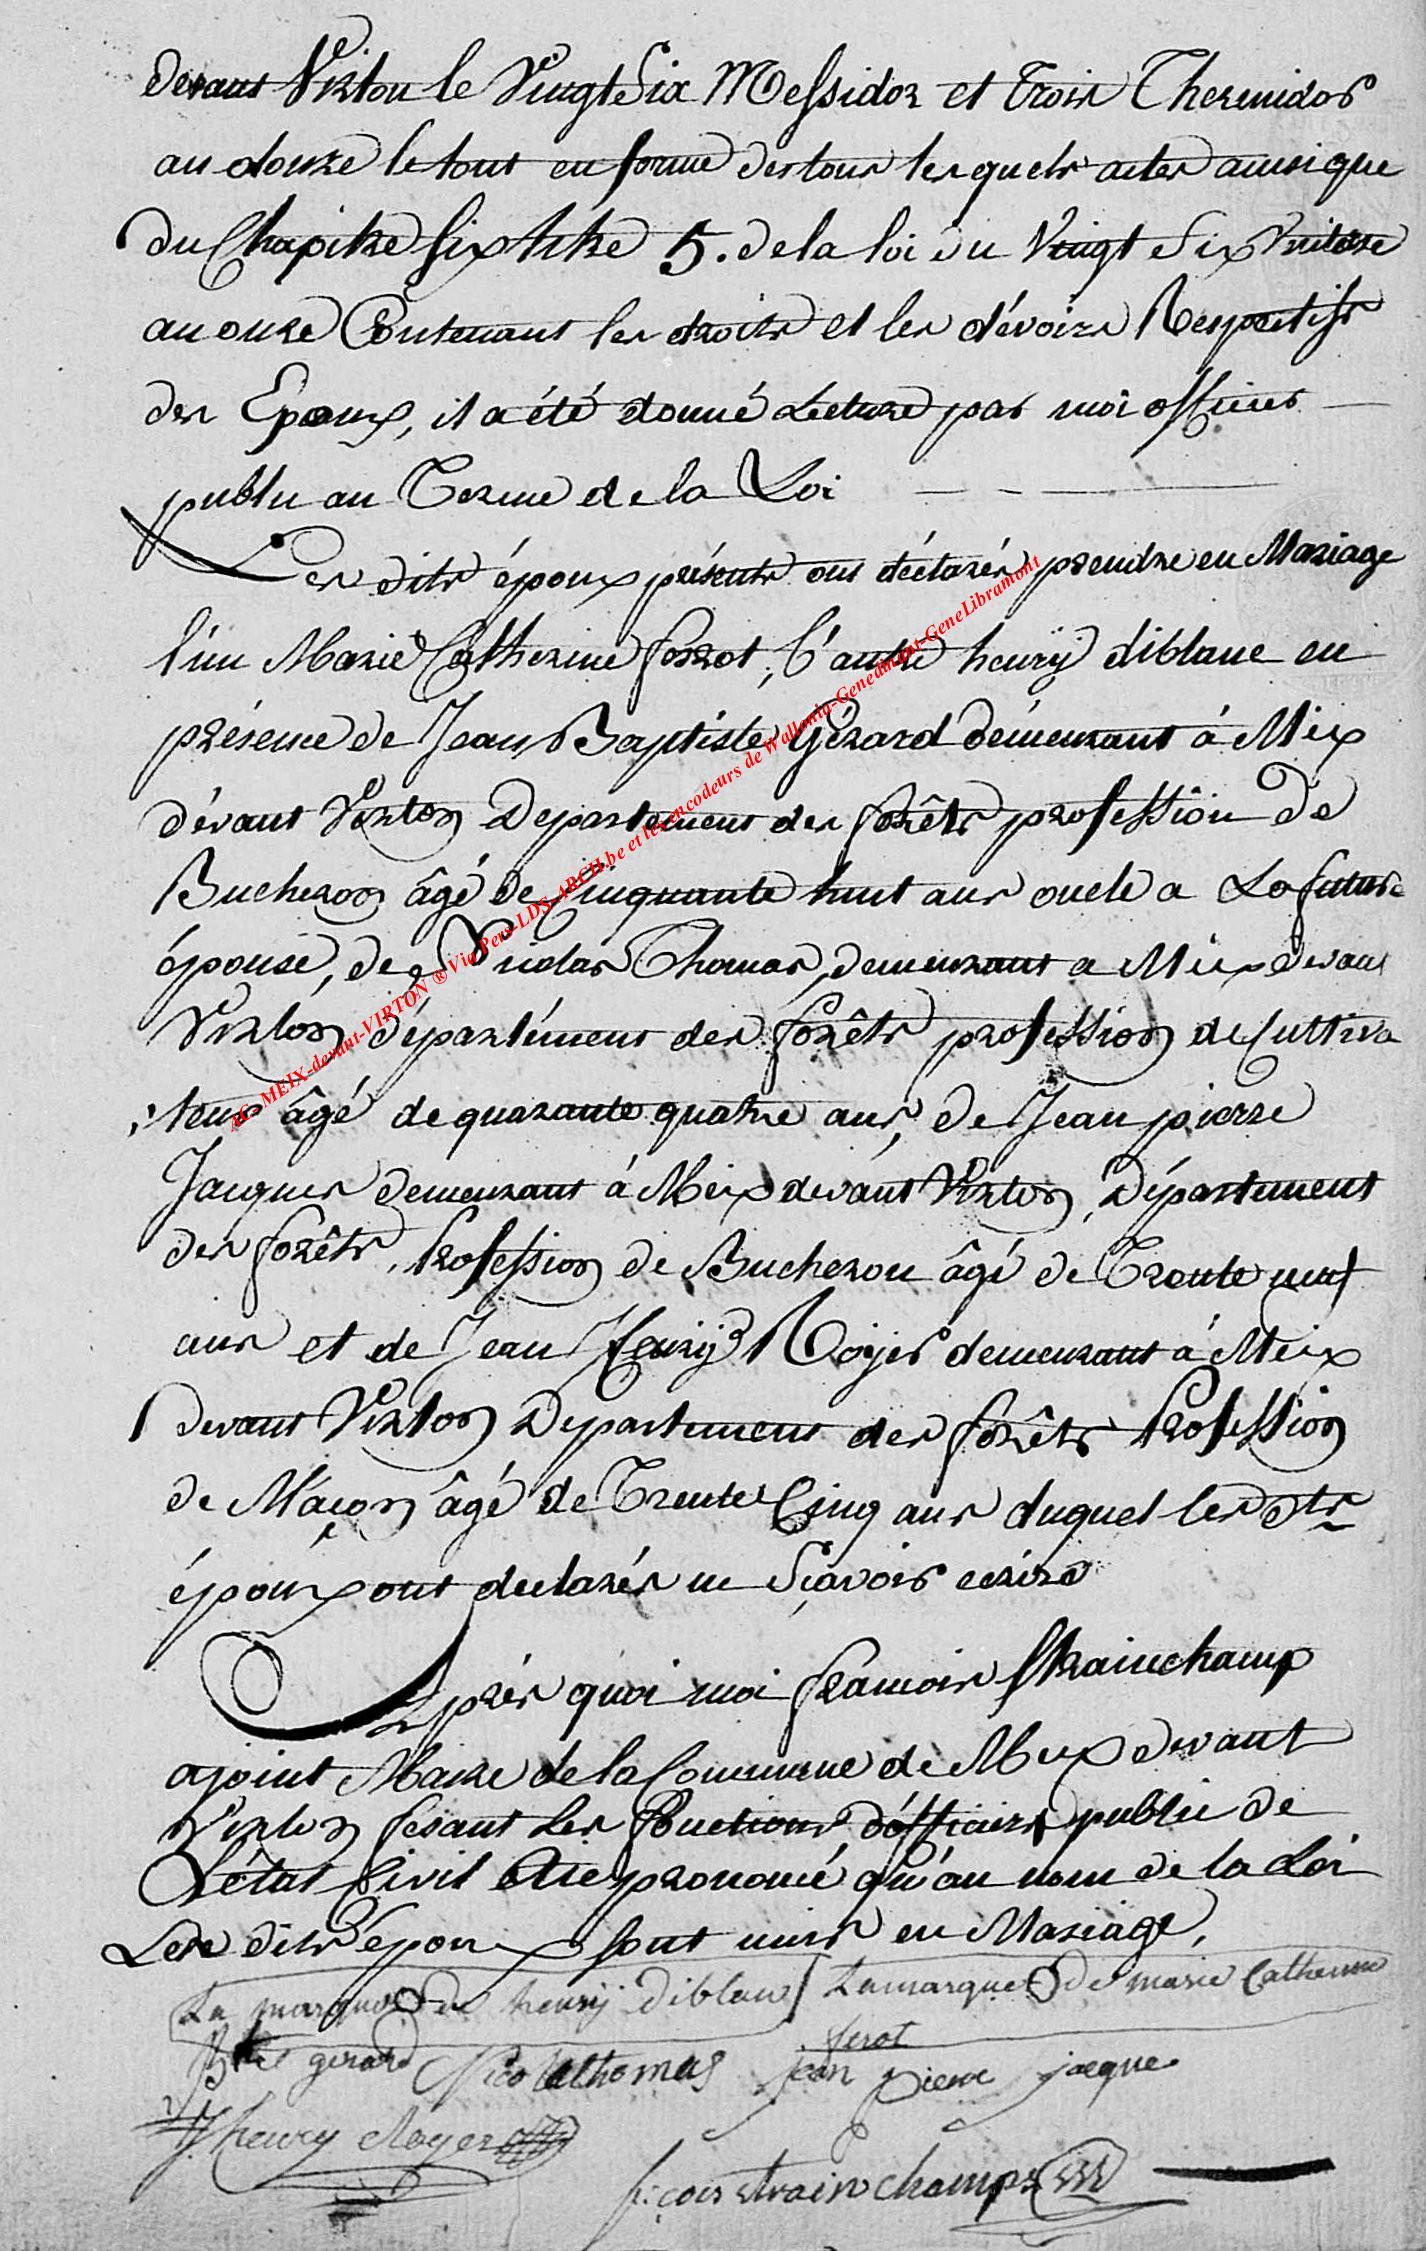 devant Virton le Vingt Six Messidor et trois Thermidor
an douze le tout en forme des tous lesquels actes ainsi que
du Chapitre Six titre 5. de la loi du Vingt Six Ventose
an onze Contenant les droits et les dévoirs Respectifs
des Epoux, il a été donné Lecture par moi officier
public au Terme de la Loi
Les dits époux présents ont déclarés prendre en Mariage
l'un Marie Catherine forrot, l'autre henrÿ diblanc en
présence de Jean Baptiste Gérard démeurant à Meix
dévant Virton Departement des forêts profession de
Bucheron âgé de Cinquante huit ans oncle a La future
épouse, de Nicolas Thomas, demeurant a Meix devant
Virton département des forêts profession de Cultiva
teur âgé de quarante quatre ans, de Jean pierre
Jacques demeurant à Meix devant Virton, Département
des forêts, Profession de Bucheron âgé de Trente neuf
ans et de Jean Henrÿ Royer demeurant à Meix
devant Virton Departement des forêts Profession
de Maçon âgé de Trente Cinq ans duquel les dts
époux ont declarés ne Sçavoir ecrire
Après quoi moi francois Strainchamp
ajoint Maire de la Commune de Meix devant
Virton fesant Les fonctions d'officier public de
L'état Civil ai prononcé qu'au nom de la Loi
Les dits époux sont unis en Mariage,
La marque de henrÿ diblan La marque de marie Catherinne
ferot
Btte gerard Nicolathomas jean pierre jacque
J henry Royer
f:çois strainchamps
AC- MEIX-devant-VIRTON ® Via Pers-LDS-ARCH.be et les encodeurs de Wallonia-Genedinant-GeneLibramont